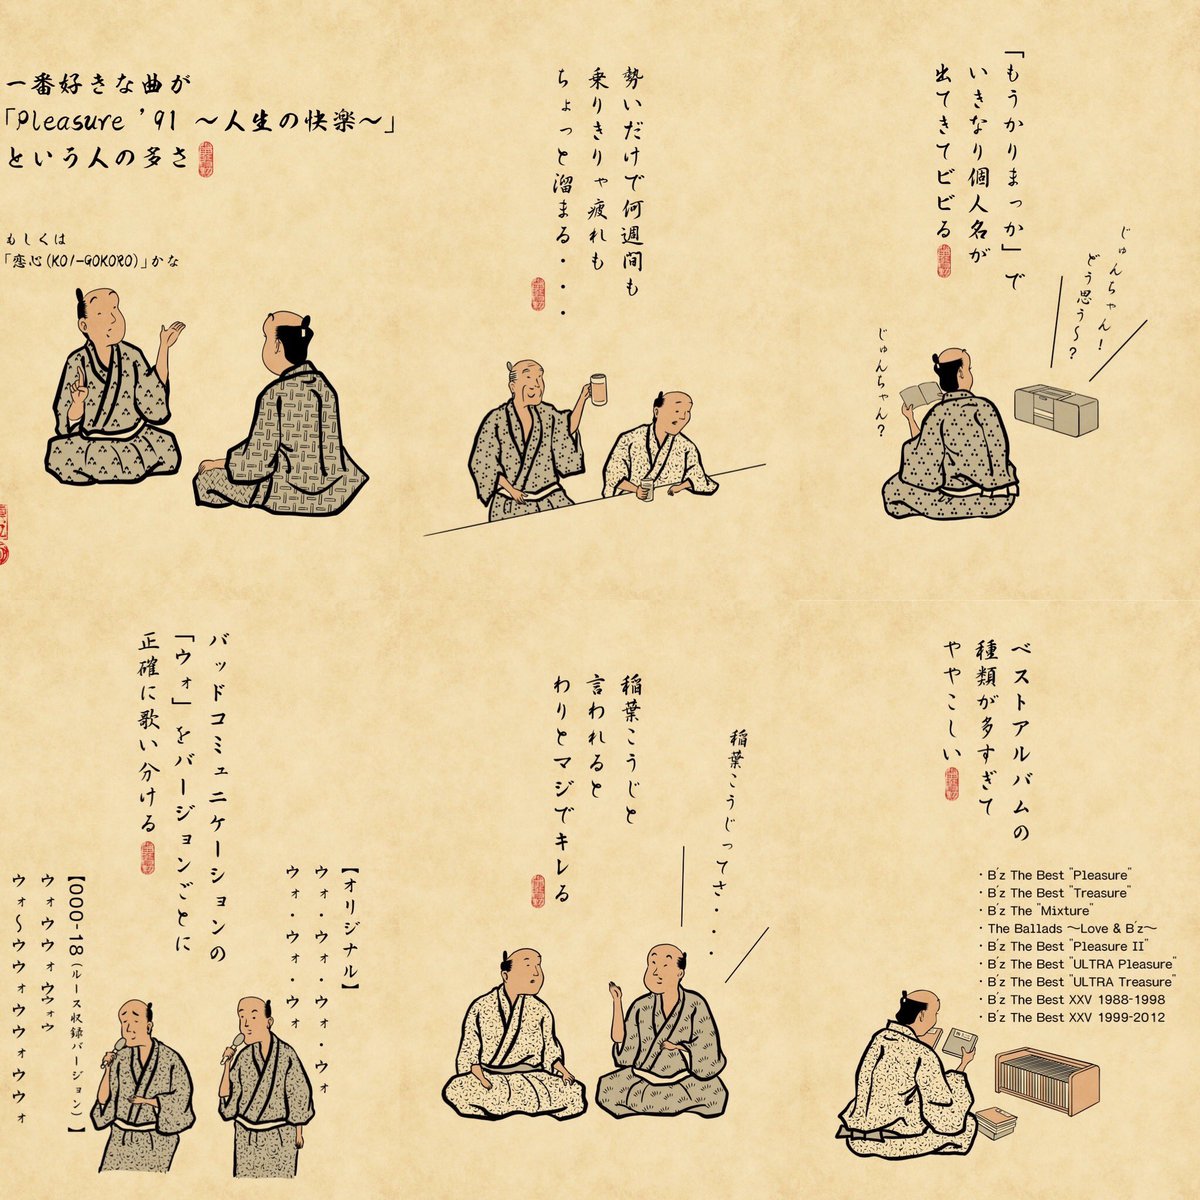 一番好きな曲が
「Pleasure '91 ～人生の快楽～」
という人の多さ
もしくは
「恋心(KOI-GOKORO)」かな
勢いだけで何週間も
乗りきりゃ疲れも
ちょっと溜まる・・・
「もうかりまっか」で
いきなり個人名が
出てきてビビる
じゅんちゃん！
どう思う～？
じゅんちゃん？
バッドコミュニケーションの
「ウォ」をバージョンごとに
正確に歌い分ける
【オリジナル】
ウォ・ウォ・ウォ・ウォ
ウォ・ウォ・ウォ
【000-18(ルース収録バージョン)】
ウォウウォウウォウ
ウォ～ウウォウウォウウォ
稲葉こうじと
言われると
わりとマジでキレる
稲葉こうじってさ・・・
ベストアルバムの
種類が多すぎて
ややこしい
・B'z The Best "Pleasure"
・B'z The Best "Treasure"
・B'z The "Mixture"
・The Ballads ～Love & B'z～
・B'z The Best "Pleasure II"
・B'z The Best "ULTRA Pleasure"
・B'z The Best "ULTRA Treasure"
・B'z The Best XXV 1988-1998
・B'z The Best XXV 1999-2012